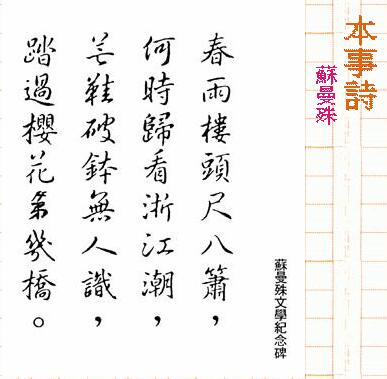 本事詩
蘇曼殊
春雨樓頭尺八簫，
何時歸看浙江潮，
芒鞋破鉢無人識，
踏過櫻花第幾橋。
蘇曼殊文學紀念碑